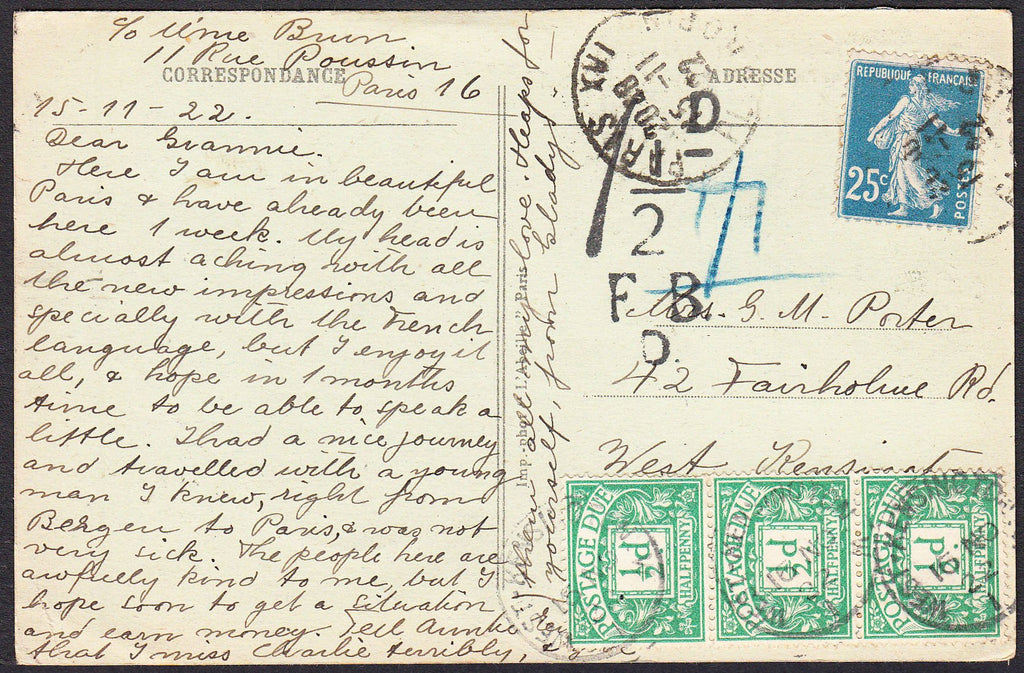 c/o Mme Brun
11 Rue Poussin
CORRESPONDANCE
Paris 16
15-11-22.
Dear Grannie.
Here I am in beautiful
Paris & have already been
here 1 week. My head is
almost aching with all
the new impressions and
specially with the French
language, but I enjoy it
all, & hope in 1 months
time to be able to speak a
little. I had a nice journey
and travelled with a young
man I knew, right from
Bergen to Paris, & was not
very sick. The people here are
awfully kind to me, but I
hope soon to get a situation
and earn money. Tell Auntie
that I miss Charlie terribly,
them all my love. Heaps for
yourself, from Gladys.
Imp.-phot. L'Abeille, Paris
ADRESSE
PARIS XVI
D
1
2
F B
D.
REPUBLIQUE FRANÇAISE
25c
POSTES
Mrs. G. M. Porter
42 Fairholme Rd.
West
POSTAGE DUE
½D
HALFPENNY
POSTAGE DUE
½D
HALFPENNY
POSTAGE DUE
½D
HALFPENNY